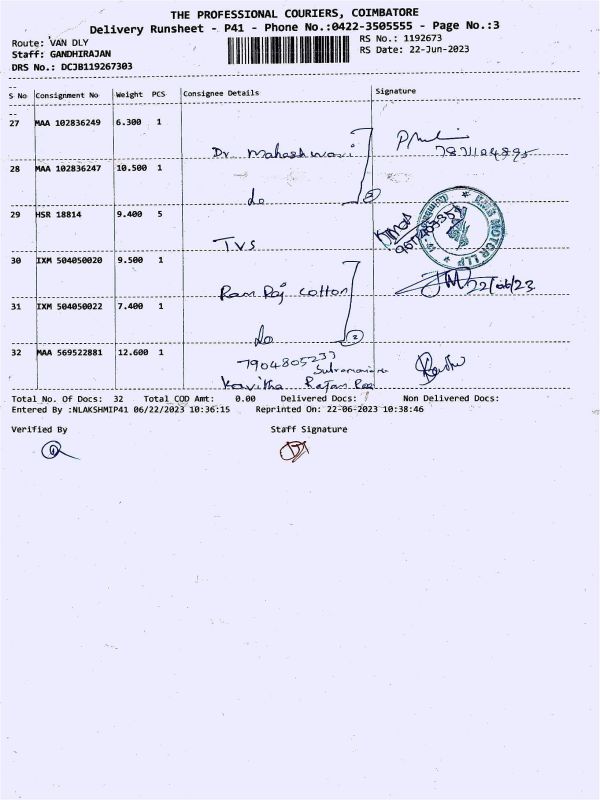 THE PROFESSIONAL COURIERS, COIMBATORE
Delivery Runsheet - P41 - Phone No.:0422-3505555 - Page No.:3
Route: VAN DLY
RS No.: 1192673
Staff: GANDHIRAJAN
RS Date: 22-Jun-2023
DRS No.: DCJB119267303
S No Consignment No Weight PCS Consignee Details Signature
27 MAA 102836249 6.300 1
Dr Maheshwari
28 MAA 102836247 10.500 1
do
2
29 HSR 18814 9.400 5
TVS
MOTOR LLP
30 IXM 504050020 9.500 1
Ram Raj Cotton
22/06/23
31 IXM 504050022 7.400 1
do
2
32 MAA 569522881 12.600 1
7904805233
Kavitha
Total No. Of Docs: 32 Total COD Amt: 0.00 Delivered Docs: Non Delivered Docs:
Entered By :NLAKSHMIP41 06/22/2023 10:36:15 Reprinted On: 22-06-2023 10:38:46
Verified By Staff Signature